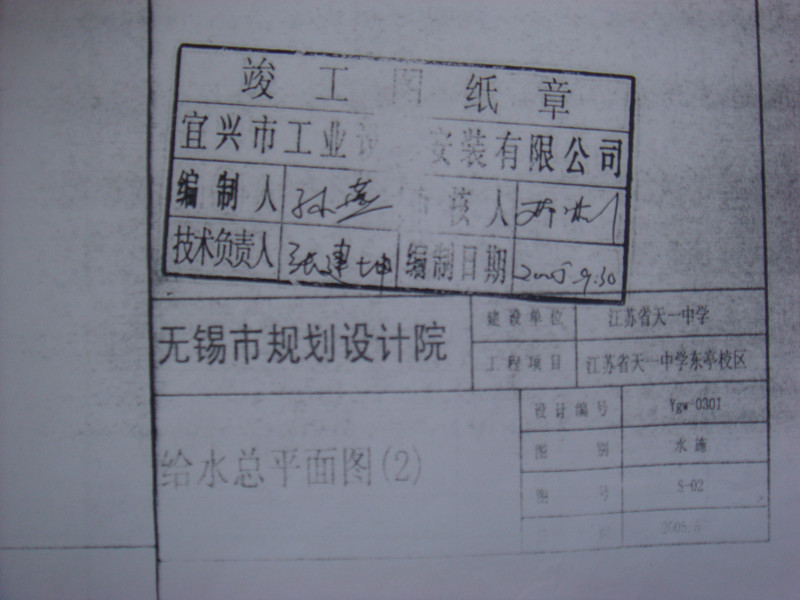 竣工图纸章
宜兴市工业设 安装有限公司
编制人 孙燕 审核人
技术负责人 张建坤 编制日期 2005.9.30
无锡市规划设计院
建设单位 江苏省天一中学
工程项目 江苏省天一中学东亭校区
给水总平面图(2)
设计编号 Ygw-0301
图别 水施
图号 S-02